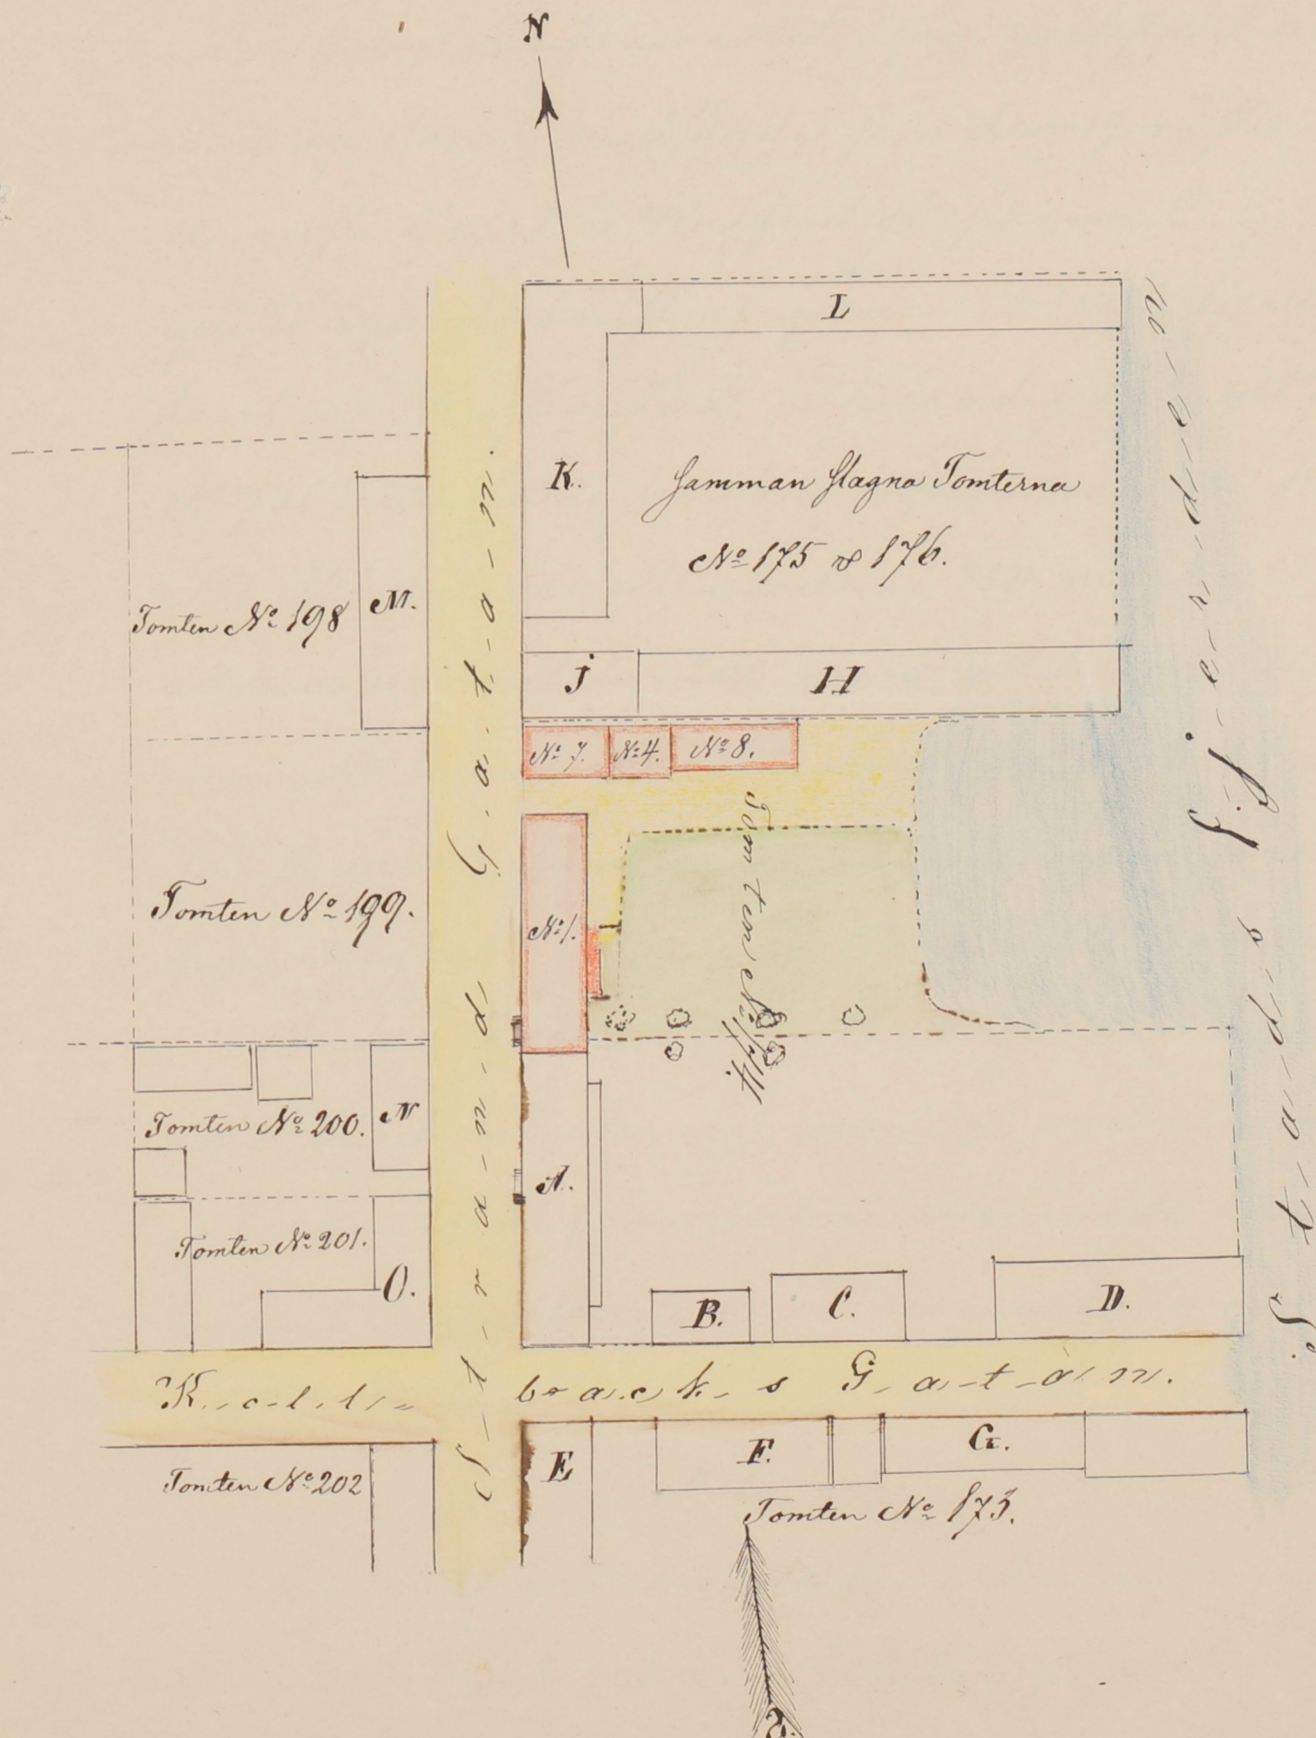 N
L
K.
Samman slagna Tomterna
No 175 & 176.
M.
Tomten No 198
J
H
No 7.
No 4.
No 8.
Tomten No 199.
No 1.
Tomten No 174.
Tomten No 200.
N
A.
Tomten No 201.
O.
B.
C.
D.
Strand Gatan.
Stads fjerden
backs Gatan.
E
F.
G.
Tomten No 202
Tomten No 173.